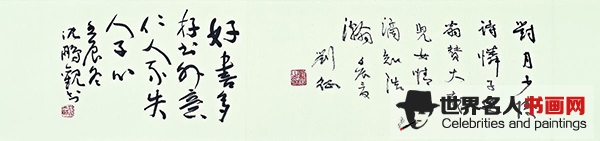 對月少
詩憐子
翁贊大
兒女情
滴知浩
瀚 壬辰夏
劉征
好書多
存書外意
仁人不失
人子心
壬辰冬
沈鵬觀書
世界名人书画网
Celebrities and paintings